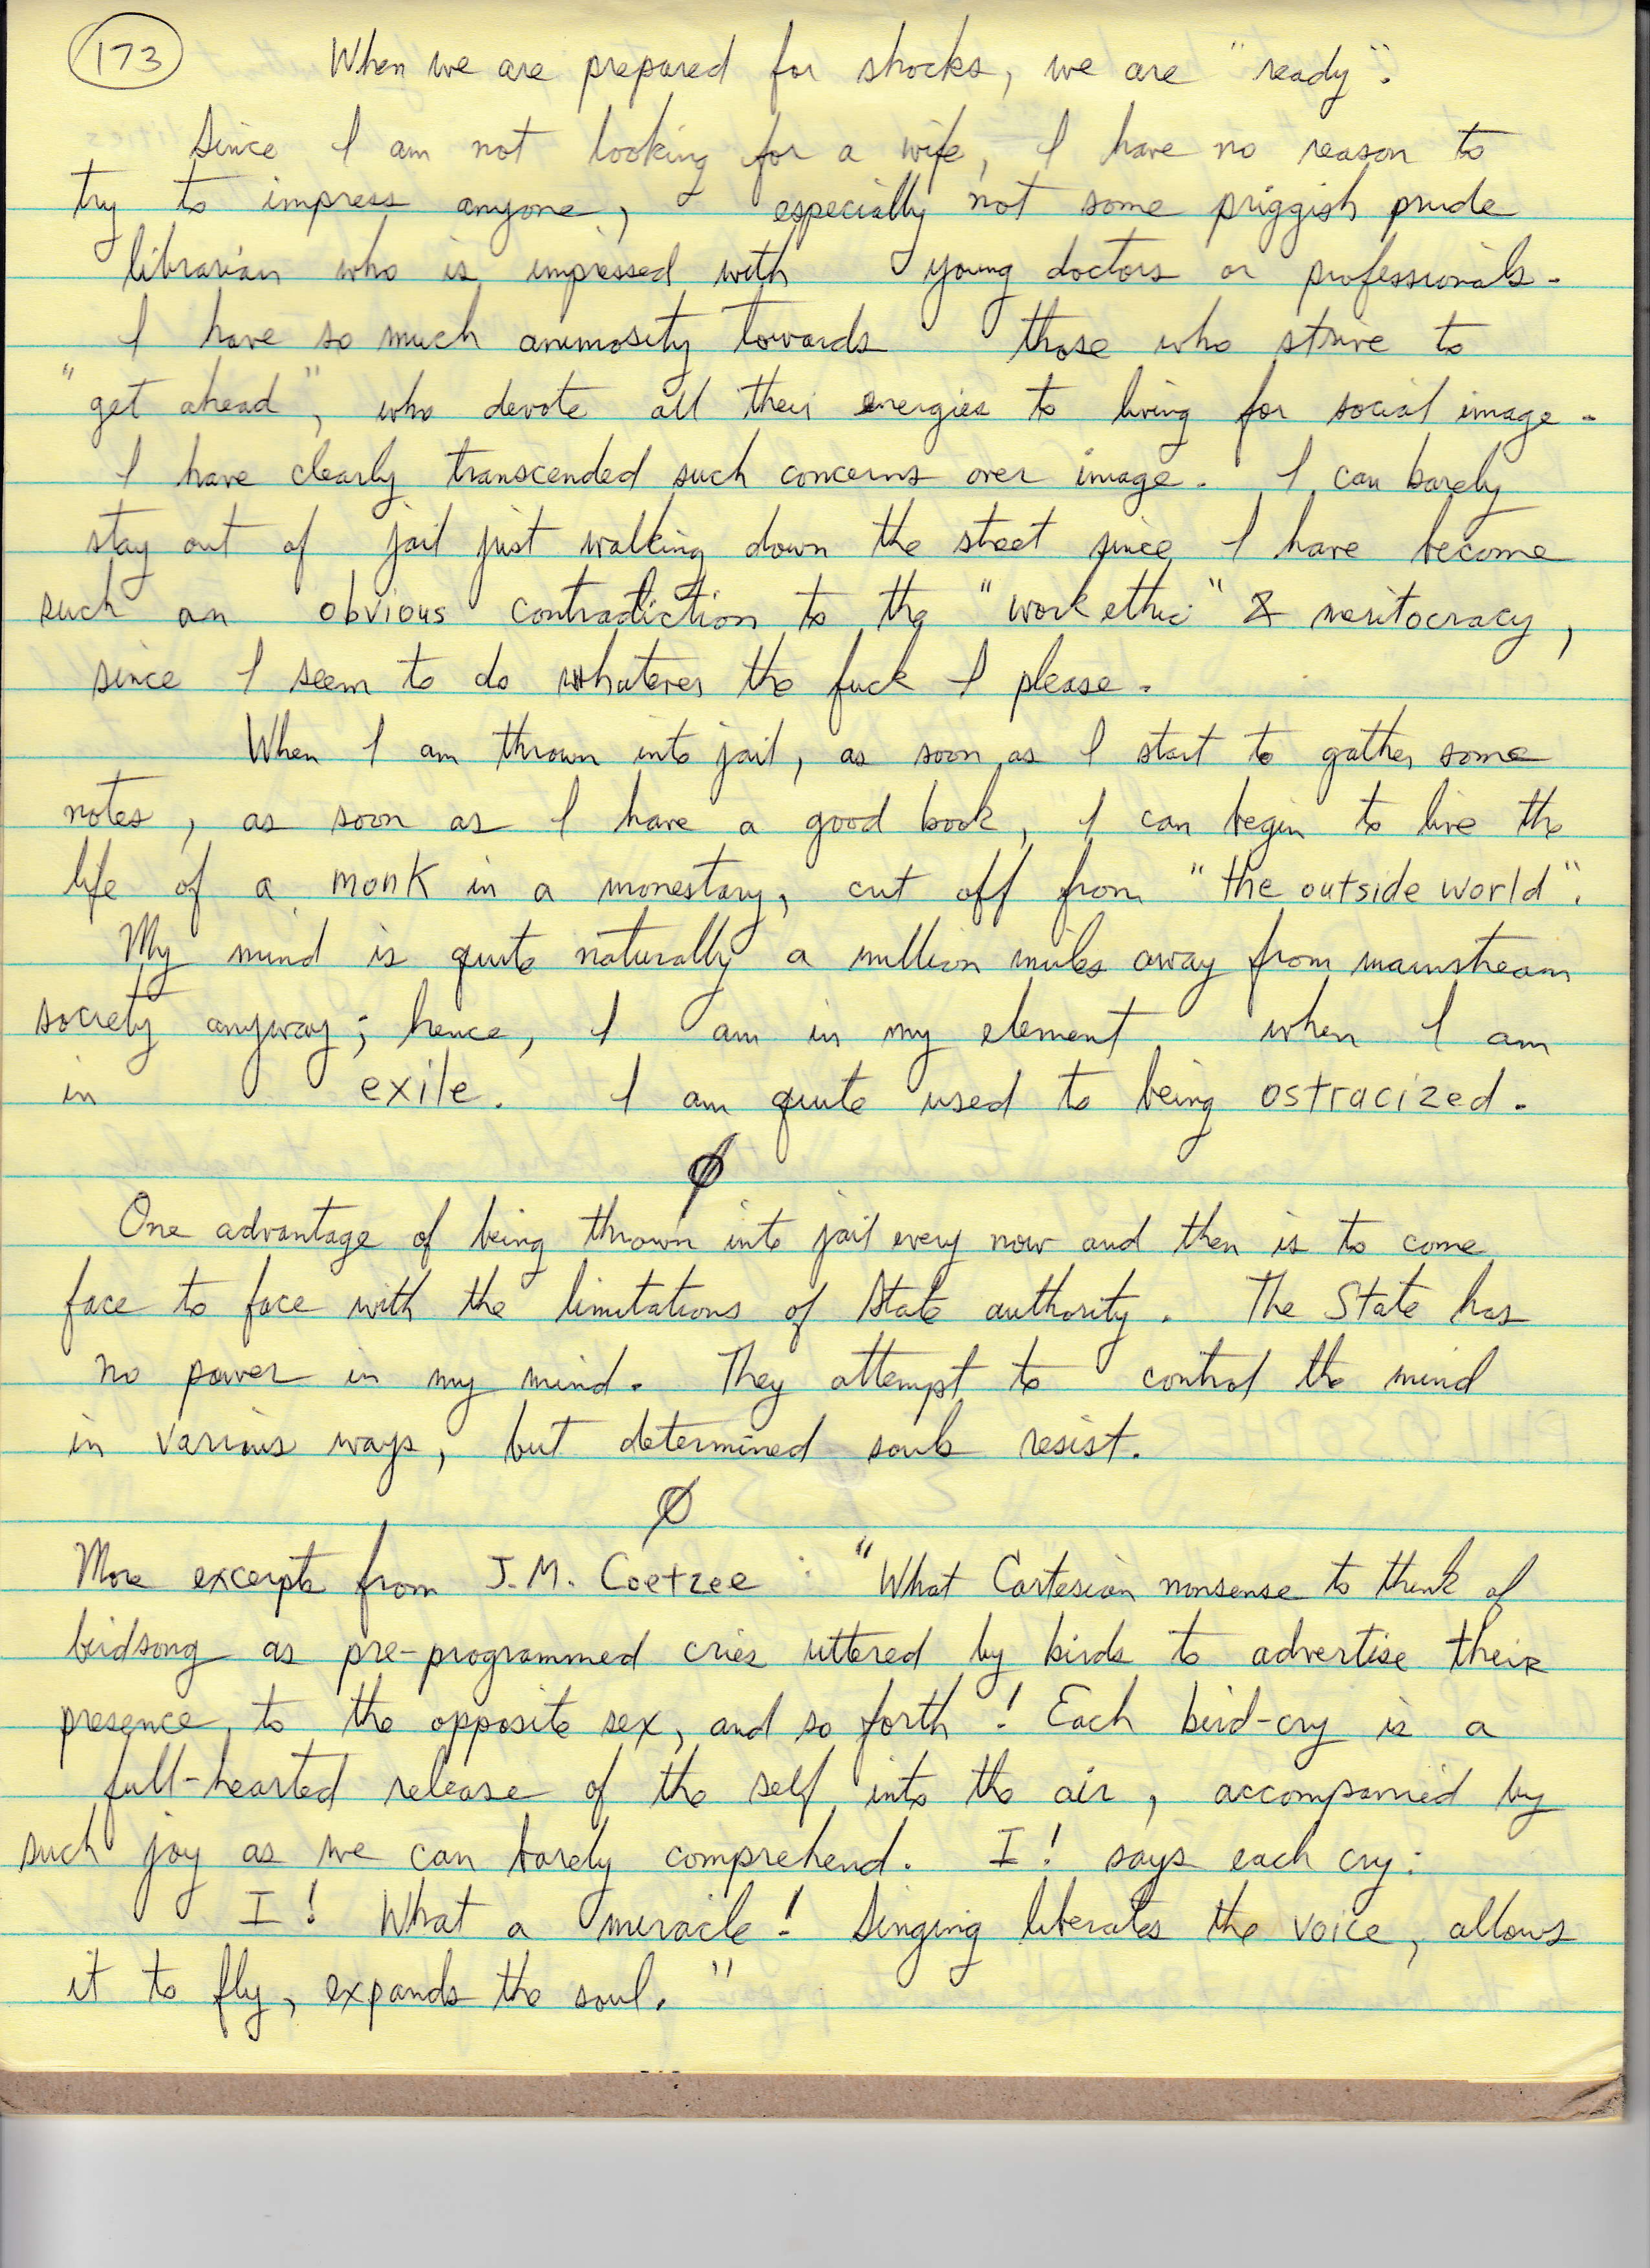 173
When we are prepared for shocks, we are "ready".
Since I am not looking for a wife, I have no reason to
try to impress anyone, especially not some priggish prude
librarian who is impressed with young doctors or professionals.
I have so much animosity towards those who strive to
"get ahead", who devote all their energies to living for social image.
I have clearly transcended such concerns over image. I can barely
stay out of jail just walking down the street since I have become
such an obvious contradiction to the "work ethic" & meritocracy,
since I seem to do whatever the fuck I please.
When I am thrown into jail, as soon as I start to gather some
notes, as soon as I have a good book, I can begin to live the
life of a monk in a monestary, cut off from "the outside world".
My mind is quite naturally a million miles away from mainstream
society anyway; hence, I am in my element when I am
in exile. I am quite used to being ostracized.
Ø
One advantage of being thrown into jail every now and then is to come
face to face with the limitations of State authority. The State has
no power in my mind. They attempt to control the mind
in various ways, but determined souls resist.
Ø
More excerpts from J.M. Coetzee : "What Cartesian nonsense to think of
birdsong as pre-programmed cries uttered by birds to advertise their
presence to the opposite sex, and so forth! Each bird-cry is a
full-hearted release of the self into the air, accompanied by
such joy as we can barely comprehend. I! says each cry:
I! What a miracle! Singing liberates the voice, allows
it to fly, expands the soul."